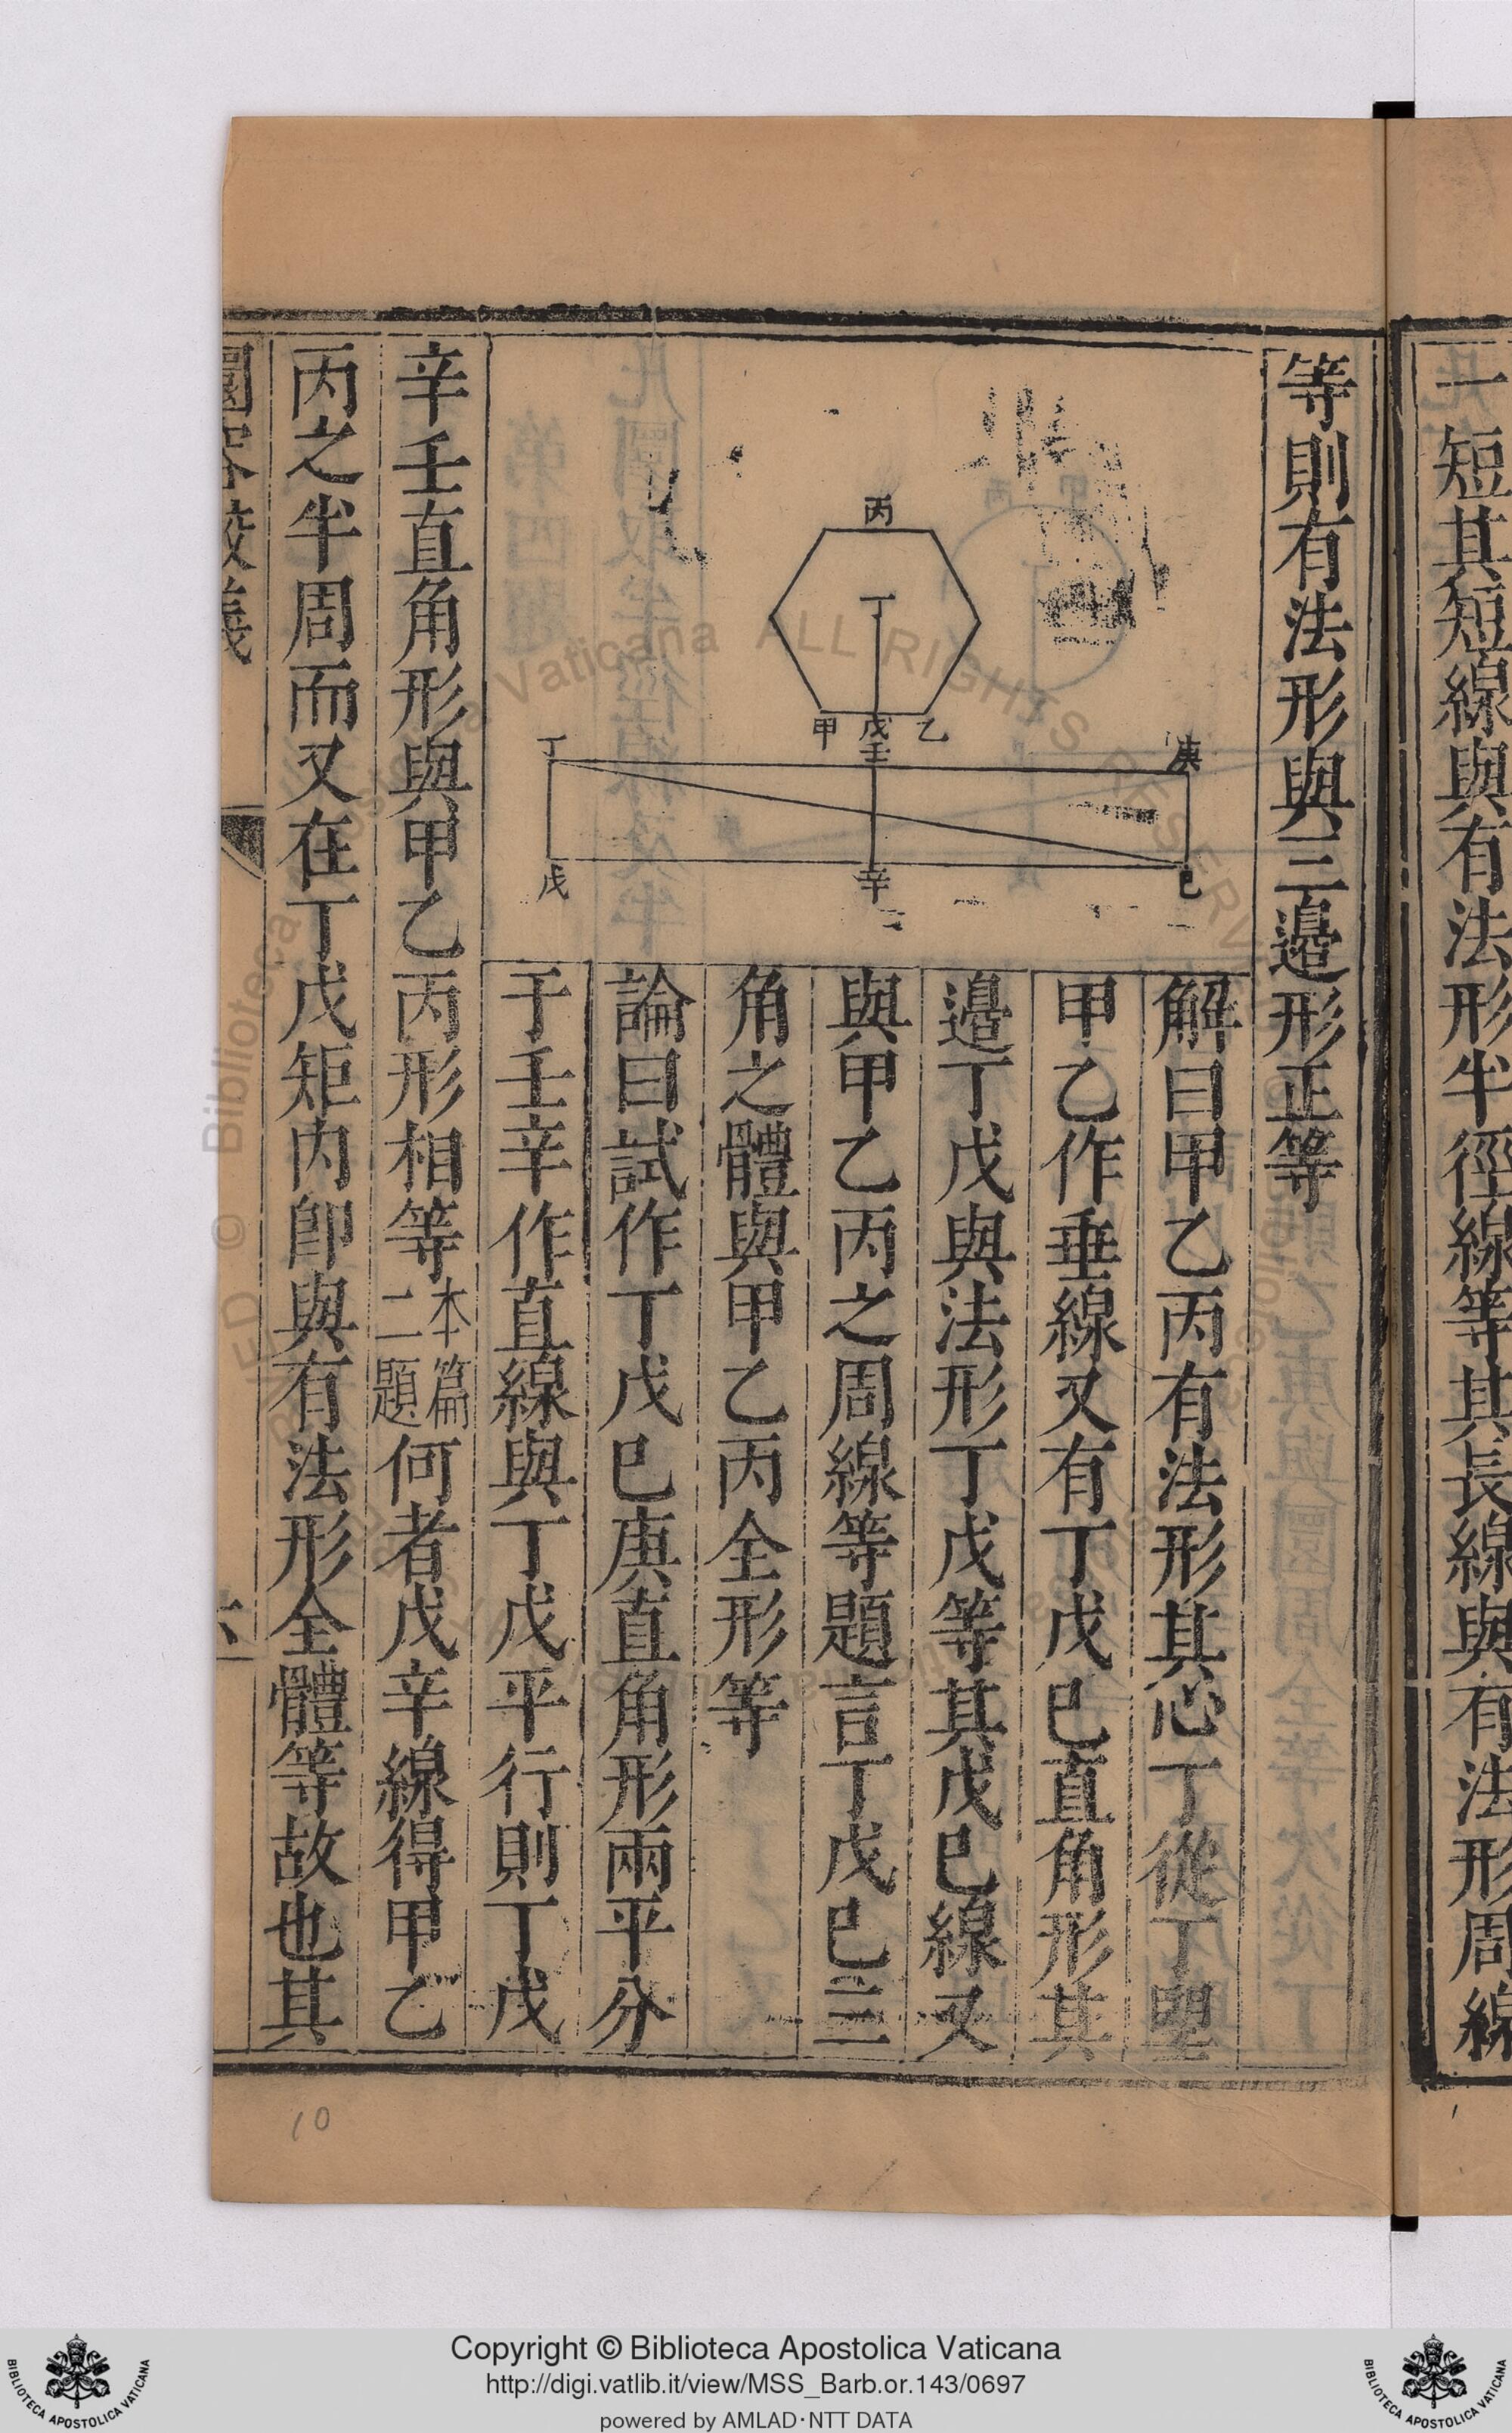 一短其短線與有法形半徑線等其長線與有法形周線
等則有法形與三邊形正等
丙
丁
甲 戊 乙
丁 壬 庚
戊 辛 巳
解曰甲乙丙有法形其心丁從丁望
甲乙作垂線又有丁戊巳直角形其
邉丁戊與法形丁戊等其戊巳線又
與甲乙丙之周線等題言丁戊巳三
角之體與甲乙丙全形等
論曰試作丁戊巳庚直角形兩平分
于壬辛作直線與丁戊平行則丁戊
辛壬直角形與甲乙丙形相等本篇二題何者戊辛線得甲乙
丙之半周而又在丁戊矩内卽與有法形全體等故也其
圜容較義
六
10
Copyright © Biblioteca Apostolica Vaticana
http://digi.vatlib.it/view/MSS_Barb.or.143/0697
powered by AMLAD·NTT DATA
BIBLIOTECA APOSTOLICA VATICANA
BIBLIOTECA APOSTOLICA VATICANA